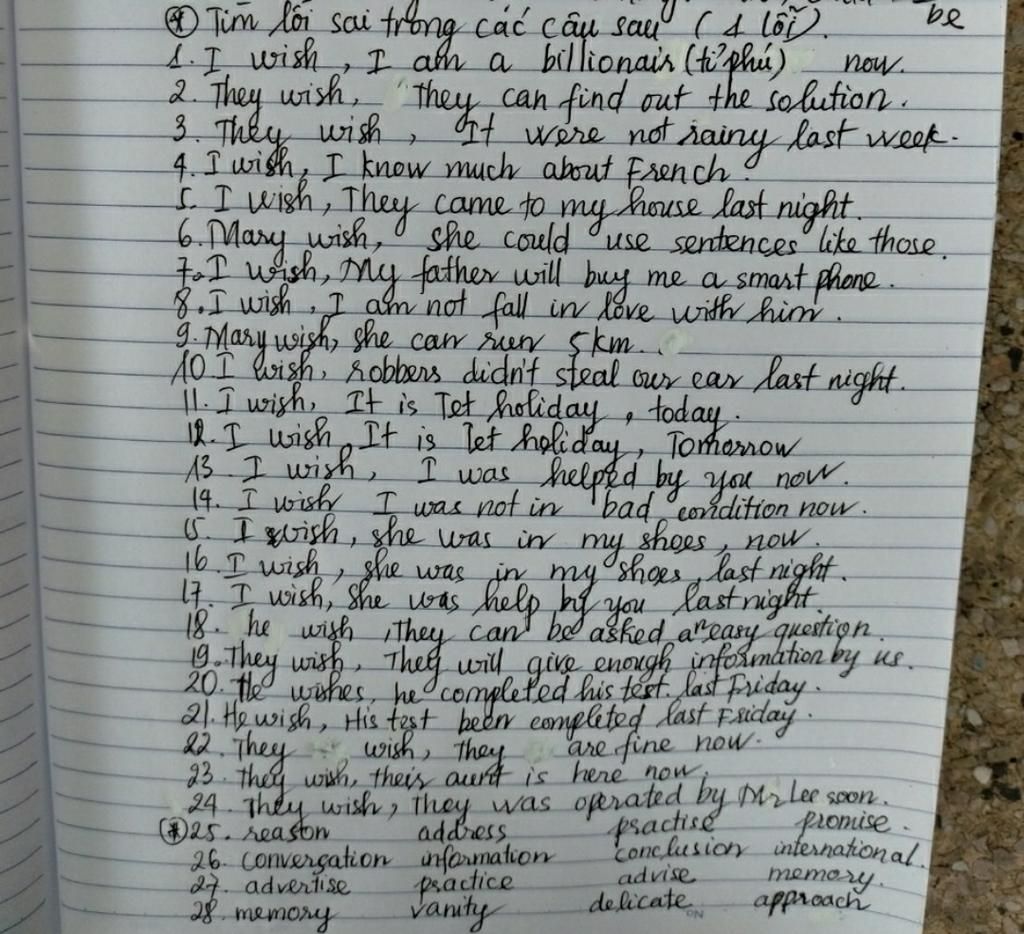 be
* Tìm lỗi sai trong các câu sau (1 lỗi).
1. I wish, I am a billionair (tỉ phú) now.
2. They wish, They can find out the solution.
3. They wish, It were not rainy last week.
4. I wish, I know much about French.
5. I wish, They came to my house last night.
6. Mary wish, she could use sentences like those.
7. I wish, My father will buy me a smart phone.
8. I wish, I am not fall in love with him.
9. Mary wish, she can run 5km.
10 I wish, robbers didn't steal our car last night.
11. I wish, It is Tet holiday, today.
12. I wish, It is Tet holiday, Tomorrow
13. I wish, I was helped by you now.
14. I wish I was not in bad condition now.
15. I wish, she was in my shoes, now.
16. I wish, she was in my shoes, last night.
17. I wish, She was help by you last night.
18. he wish, They can be asked an easy question.
19. They wish, They will give enough information by us.
20. He wishes, he completed his test last Friday.
21. He wish, His test been completed last Friday.
22. They wish, They are fine now.
23. They wish, their aunt is here now.
24. They wish, They was operated by Mr Lee soon.
* 25. reason address practise promise.
26. convergation information conclusion international.
27. advertise practice advise memory.
28. memory vanity delicate approach